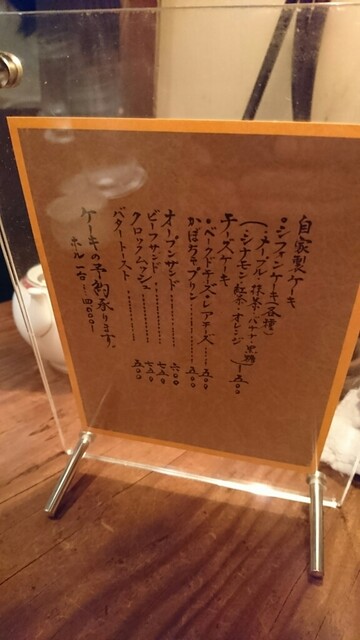 自家製ケーキ
○シフォンケーキ(各種)
(・メープル・抹茶・バナナ・黒糖
・シナモン・紅茶・オレンジ)―五〇〇
チーズケーキ
○ベークドチーズ・レアチーズ……五〇〇
かぼちゃプリン…………五〇〇
オープンサンド…………六〇〇
ビーフサンド…………七五〇
クロックムッシュ…………七五〇
バタートースト…………五〇〇
ケーキの予約承ります。
ホール一台―四〇〇〇―